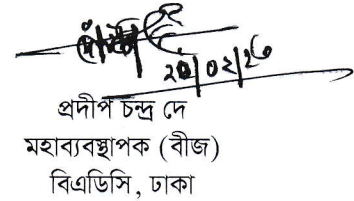 ২০/০২/২৬
প্রদীপ চন্দ্র দে
মহাব্যবস্থাপক (বীজ)
বিএডিসি, ঢাকা